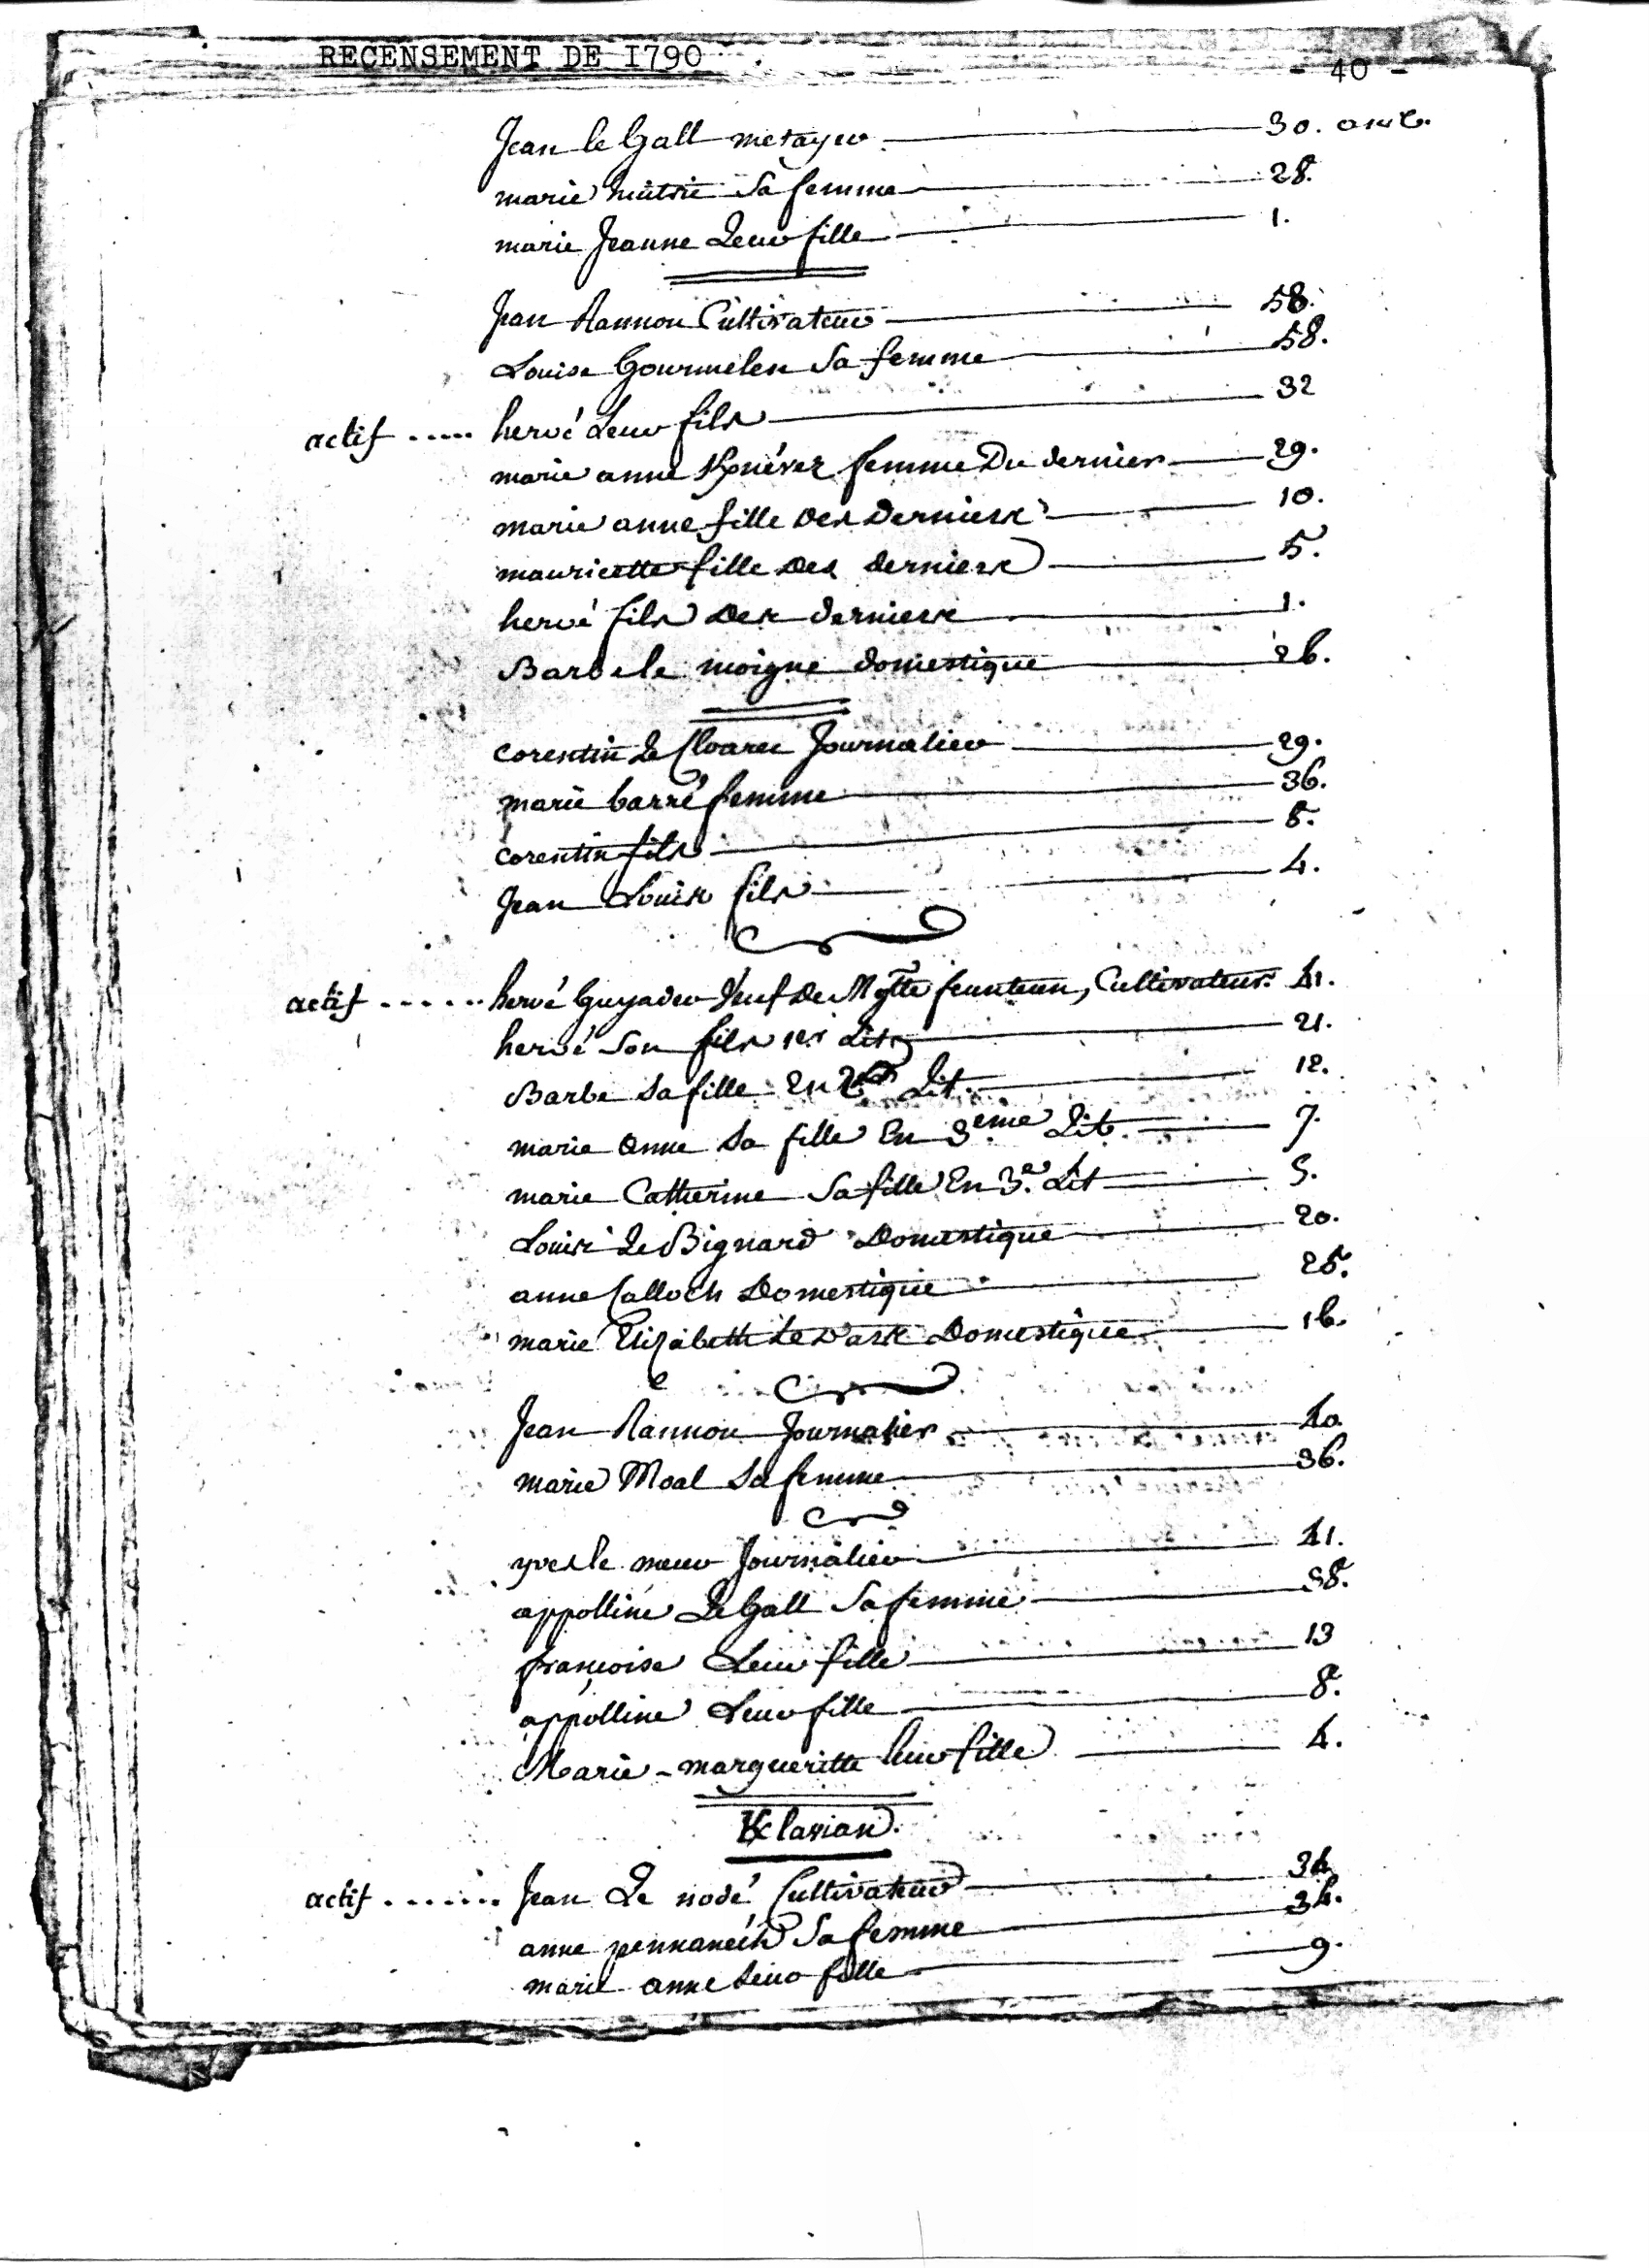 RECENSEMENT DE I790
- 40 -
Jean le Gall metayer 30. ans.
marie sa femme 28.
marie Jeanne Leur fille 1.
Jean Rannou Cultivateur 58.
Louise Gourmelen Sa femme 58.
actif ..... hervé Leur fils 32
marie anne femme Du dernier 29.
marie anne fille des Derniers 10.
mauricette fille des derniers 5.
hervé fils des derniers 1.
Barbe le moigne domestique 26.
corentin Le Cloarec Journalier 29.
marie barré femme 36.
corentin fils 8.
Jean Louis fils 4.
actif ...... hervé Guyader Veuf de feunteun, Cultivateur. 41.
hervé Son fils 1er Lit 21.
Barbe Sa fille En Lit. 12.
marie anne Sa fille En 3.eme Lit. 7.
marie Catherine Sa fille En 3.e Lit 5.
Louise Le Bignard Domestique 20.
anne Calloch Domestique 25.
marie Elizabeth Domestique 16.
Jean Rannou Journalier 40
marie Moal Sa femme 36.
yves le meur Journalier 41.
appolline Le Gall Sa femme 38.
françoise Leur fille 13
appolline Leur fille 8.
Marie-margueritte leur fille 4.
actif ....... Jean Le nodé Cultivateur 34
anne pennanech Sa femme 34.
marie anne Leur fille 9.